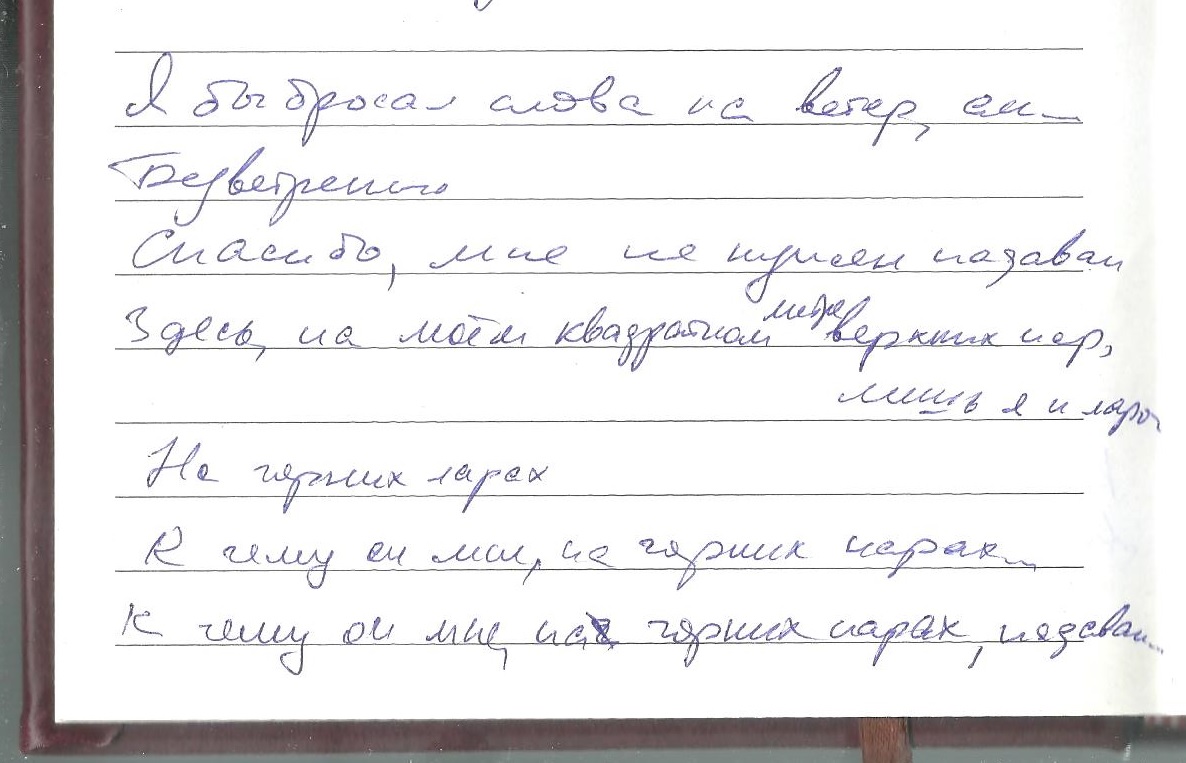 Я бы бросал слова на ветер, он...
Безветренно
Спасибо, мне не нужен пазаван
Здесь, на моём квадратном метре верхних нар,
лишь я и лары
На горних ларах
К чему он мне, на горних нарах...
К чему он мне, на горних нарах,